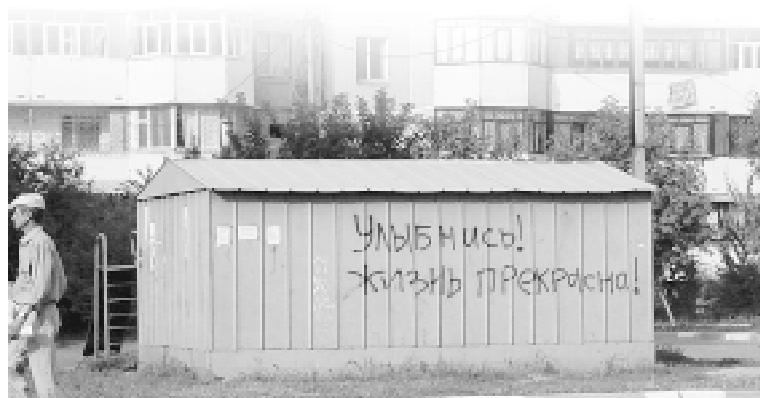 Улыбнись!
жизнь прекрасна!